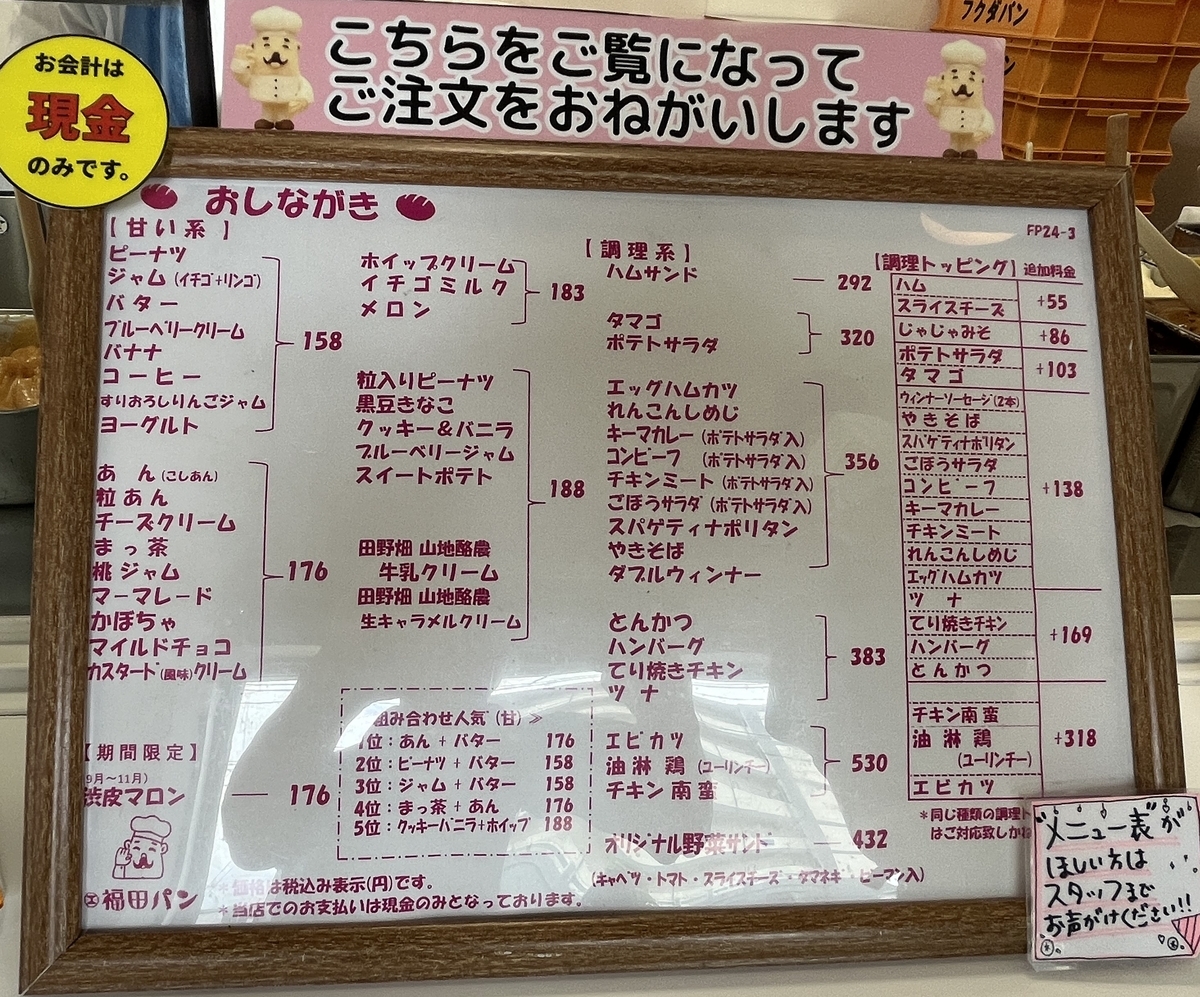 フクダパン
ン
お会計は
現金
のみです。
こちらをご覧になって
ご注文をおねがいします
おしながき
FP24-3
【甘い系】
ピーナツ
ジャム(イチゴ+リンゴ)
バター
ブルーベリークリーム
バナナ
コーヒー
すりおろしりんごジャム
ヨーグルト
158
あん(こしあん)
粒あん
チーズクリーム
まっ茶
桃ジャム
マーマレード
かぼちゃ
マイルドチョコ
カスタード(風味)クリーム
176
【期間限定】
9月〜11月)
渋皮マロン 176
ホイップクリーム
イチゴミルク
メロン
183
粒入りピーナツ
黒豆きなこ
クッキー&バニラ
ブルーベリージャム
スイートポテト
田野畑 山地酪農
牛乳クリーム
田野畑 山地酪農
生キャラメルクリーム
188
組み合わせ人気(甘)≫
1位:あん+バター 176
2位:ピーナツ+バター 158
3位:ジャム+バター 158
4位:まっ茶+あん 176
5位:クッキーバニラ+ホイップ 188
【調理系】
ハムサンド 292
タマゴ
ポテトサラダ
320
エッグハムカツ
れんこんしめじ
キーマカレー(ポテトサラダ入)
コンビーフ(ポテトサラダ入)
チキンミート(ポテトサラダ入)
ごぼうサラダ(ポテトサラダ入)
スパゲティナポリタン
やきそば
ダブルウィンナー
356
とんかつ
ハンバーグ
てり焼きチキン
ツナ
383
エビカツ
油淋鶏(ユーリンチー)
チキン南蛮
530
オリジナル野菜サンド 432
(キャベツ・トマト・スライスチーズ・タマネギ・ピーマン入)
【調理トッピング】追加料金
ハム
スライスチーズ
+55
じゃじゃみそ +86
ポテトサラダ
タマゴ
+103
ウィンナーソーセージ(2本)
やきそば
スパゲティナポリタン
ごぼうサラダ
コンビーフ
キーマカレー
チキンミート
れんこんしめじ
エッグハムカツ
+138
ツナ
てり焼きチキン
ハンバーグ
とんかつ
+169
チキン南蛮
油淋鶏
(ユーリンチー)
エビカツ
+318
*同じ種類の調理ト
はご対応致しかね
福田パン
*価格は税込み表示(円)です。
*当店でのお支払いは現金のみとなっております。
"メニュー表"が
ほしい方は
スタッフまで
お声がけください!!